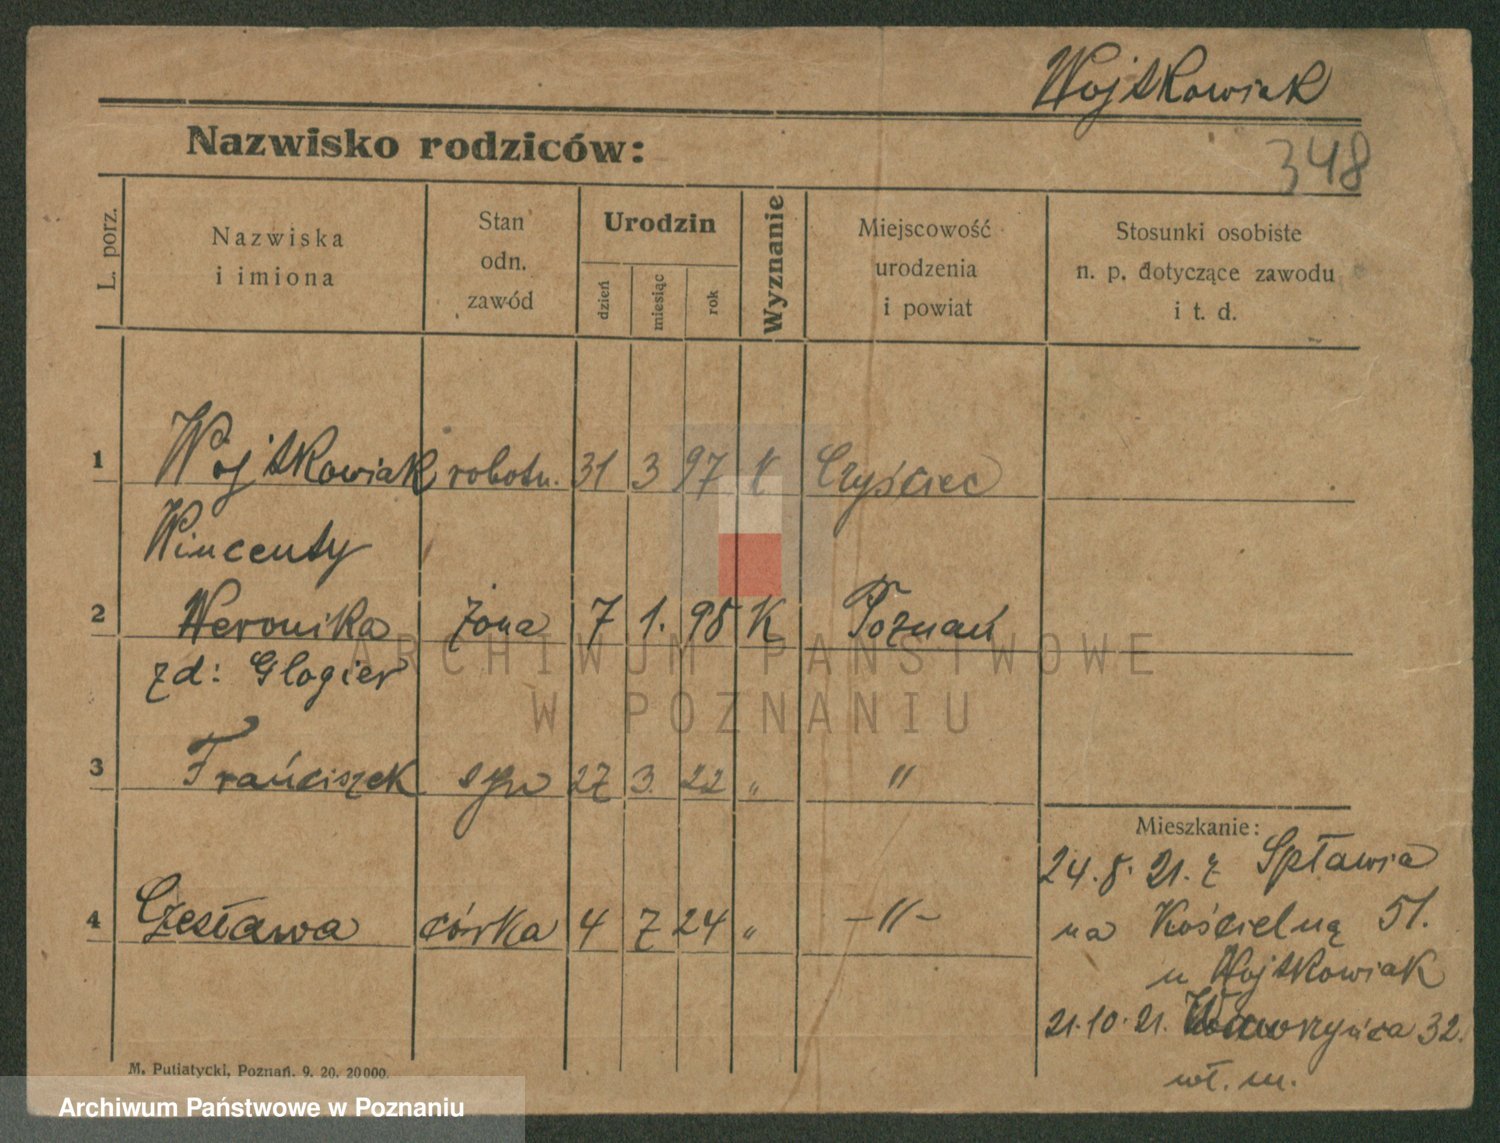 Wojtkowiak
Nazwisko rodziców:
348
L. porz.
Nazwiska
i imiona
Stan
odn.
zawód
Urodzin
dzień
miesiąc
rok
Wyznanie
Miejscowość
urodzenia
i powiat
Stosunki osobiste
n. p. dotyczące zawodu
i t. d.
1 Wojtkowiak robotn. 31 3 97 k Czyściec
Wincenty
2 Weronika żona 7 1. 98 K Poznań
zd: Glogier
ARCHIWUM PAŃSTWOWE
W POZNANIU
3 Frańciszek syn 27 3. 22 „ "
Mieszkanie:
24. 8. 21. z Spławia
4 Czesława córka 4 7 24 „ -"-
na Kościelną 51.
u Wojtkowiak
21. 10. 21. Wawrzyńca 32.
wł. m.
M. Putiatycki, Poznań. 9. 20. 20000.
Archiwum Państwowe w Poznaniu